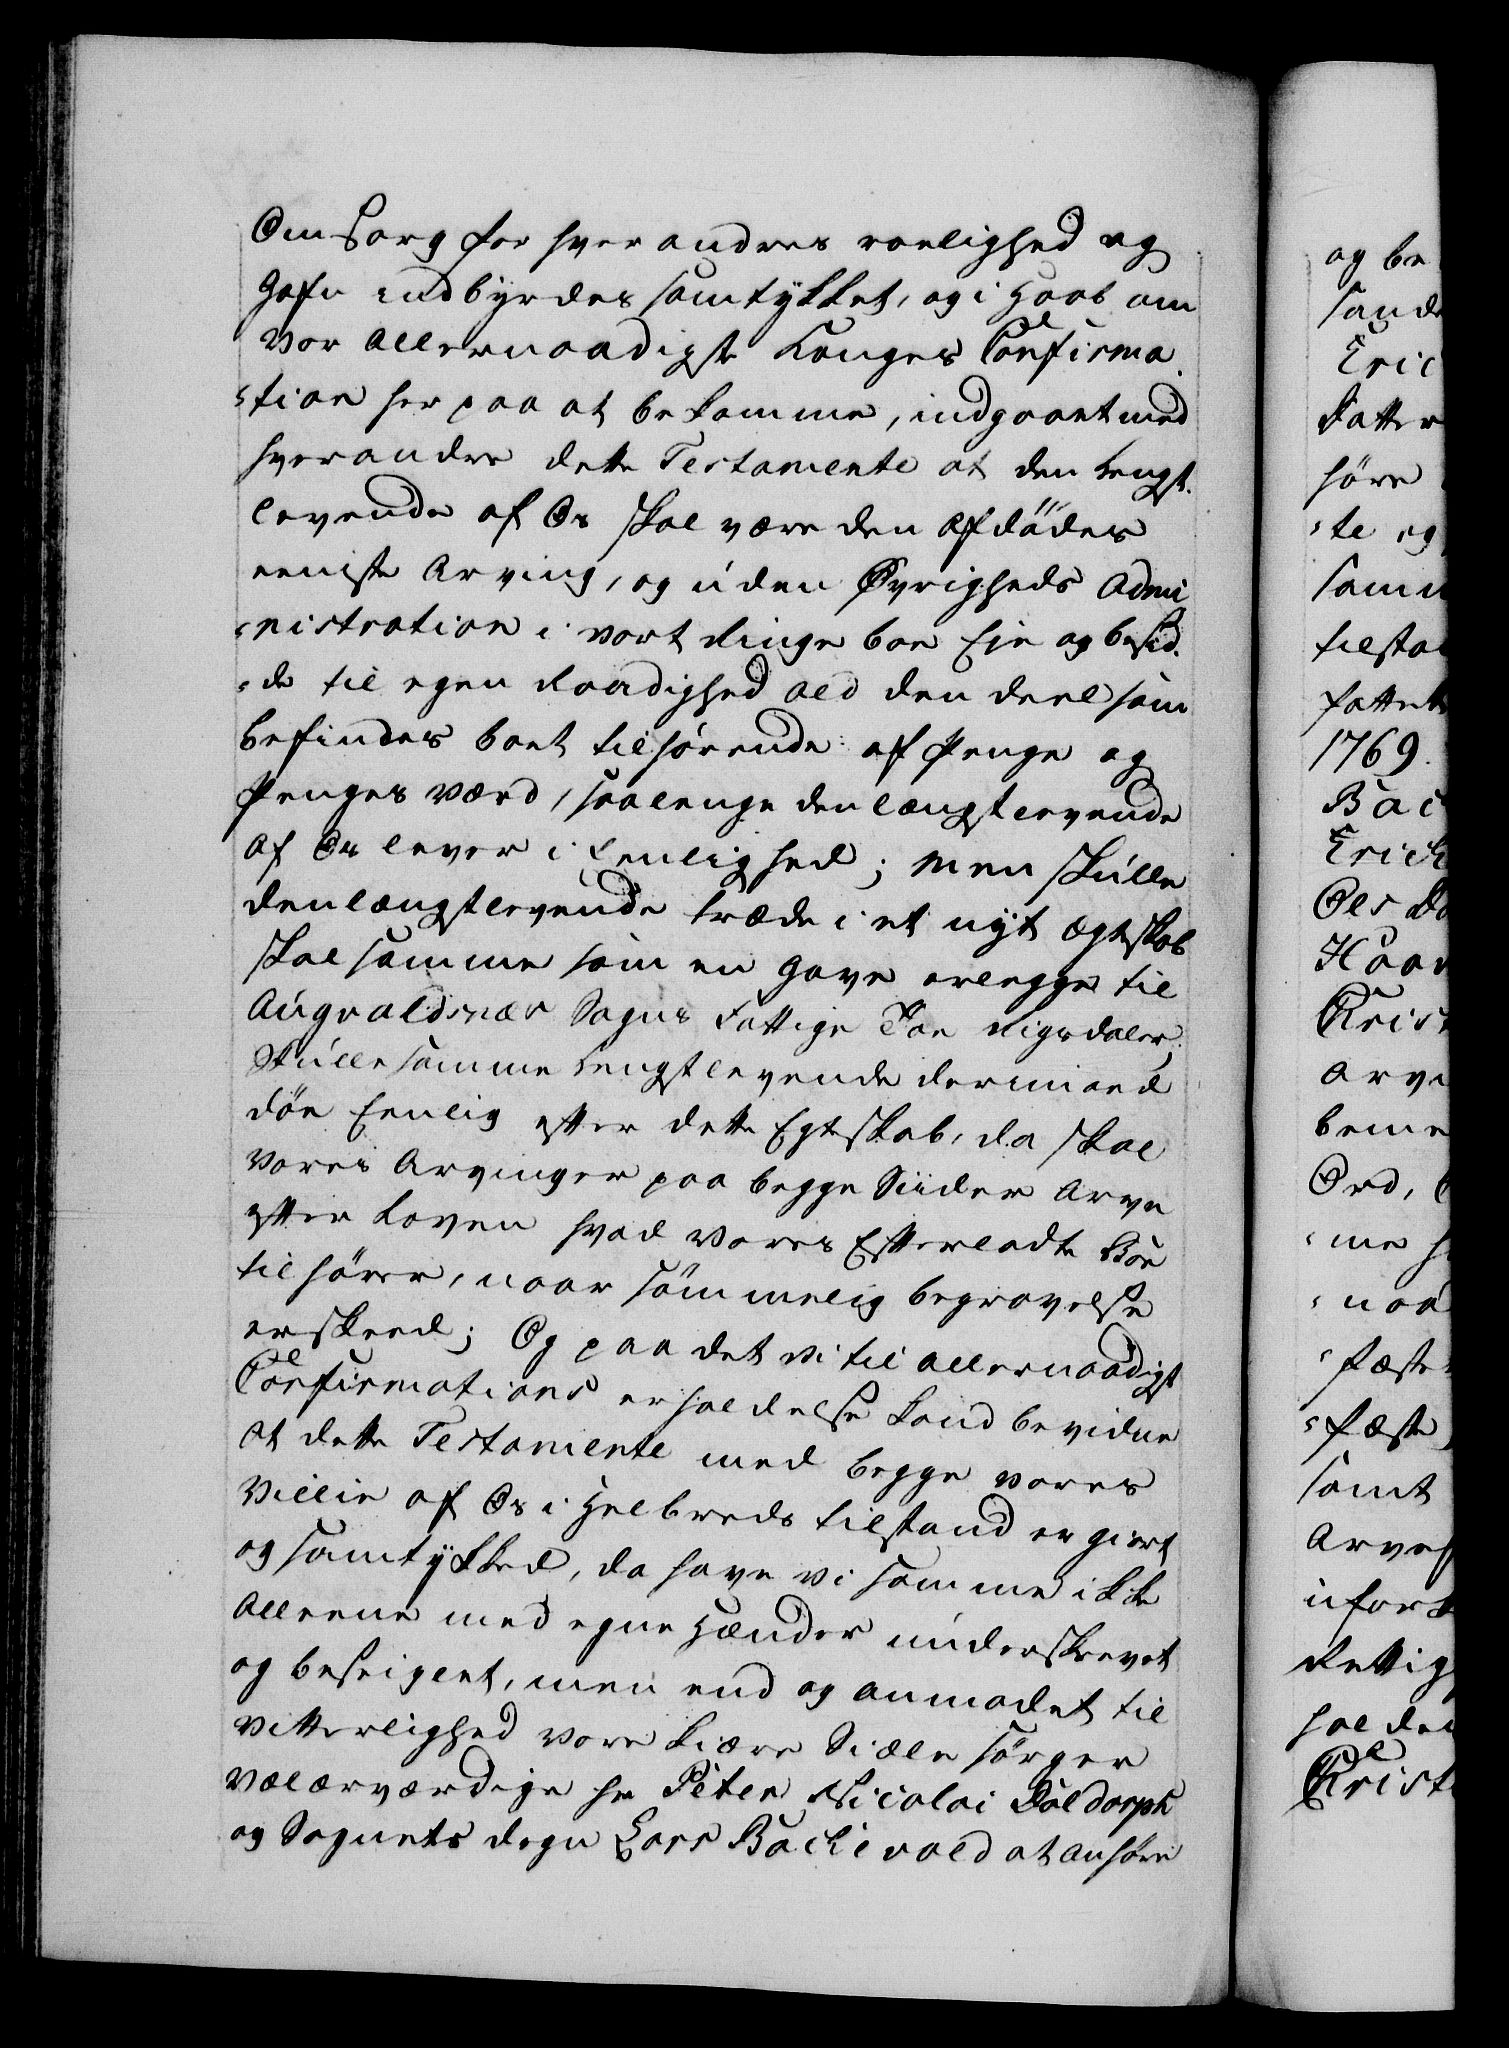 Omsorg for hverandres roelighed og
Gafn indbyrdes samtykket, og i Haab om
vor Allernaadigste Konges Confirma
-tion her paa at bekomme, indgaaet med
hverandre dette Testamente at den Lengst
levende af Os skal være den Afdödes
eeniste Arving, og uden Øvrigheds Admi
-nistration i vort Ringe boe Eje og besid
-de til egen Raadighed ald den deel som
befindes boet tilhörende af Penge og
Penges værd, saalenge den længstlevende
af Os lever i Eenlighed; men skulle
den længstlevende træde i et nyt Ægteskab
skal samme som en Gave erlegge til
Augvaldsnæs Sogns Fattige Toe Rigsdaler,
Skulle samme Lengstlevende derimod
döe Eenlig efter dette Egteskab, da skal
vores Arvinger paa begge Siider Arve
efter Loven hvad vores Efterladte Boe
tilhörer, naar sömmelig begravelse
er skeed; Og paa det vi til allernaadigst
Confirmations erholdelse kand bevidne
at dette Testamente med begge vores
Villie af Os i Helbreds tilstand er giort
og samtykked, da have vi samme ikke
Alleene med egne Hænder underskrevet
og beseiglet, men end og anmodet til
vitterlighed vore kiære Siæle sörger
vælærværdige hr Peter Nicolai Doldorph
og Sognets degn Lars Backevold at anhöre
og be
sande
Eric
datter
höre
-te og
samm
tilstaa
fattet
1769.
Bac
Erick
Ols Da
Haav
Krist
Arvi
beme
Ord,
-me h
-naa
-fæste
-fæste
samt
Arvef
uforkr
Rettig
holde
Krist